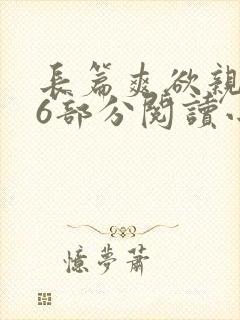 長篇爽欲親
6部分閱讀
憶夢蕭